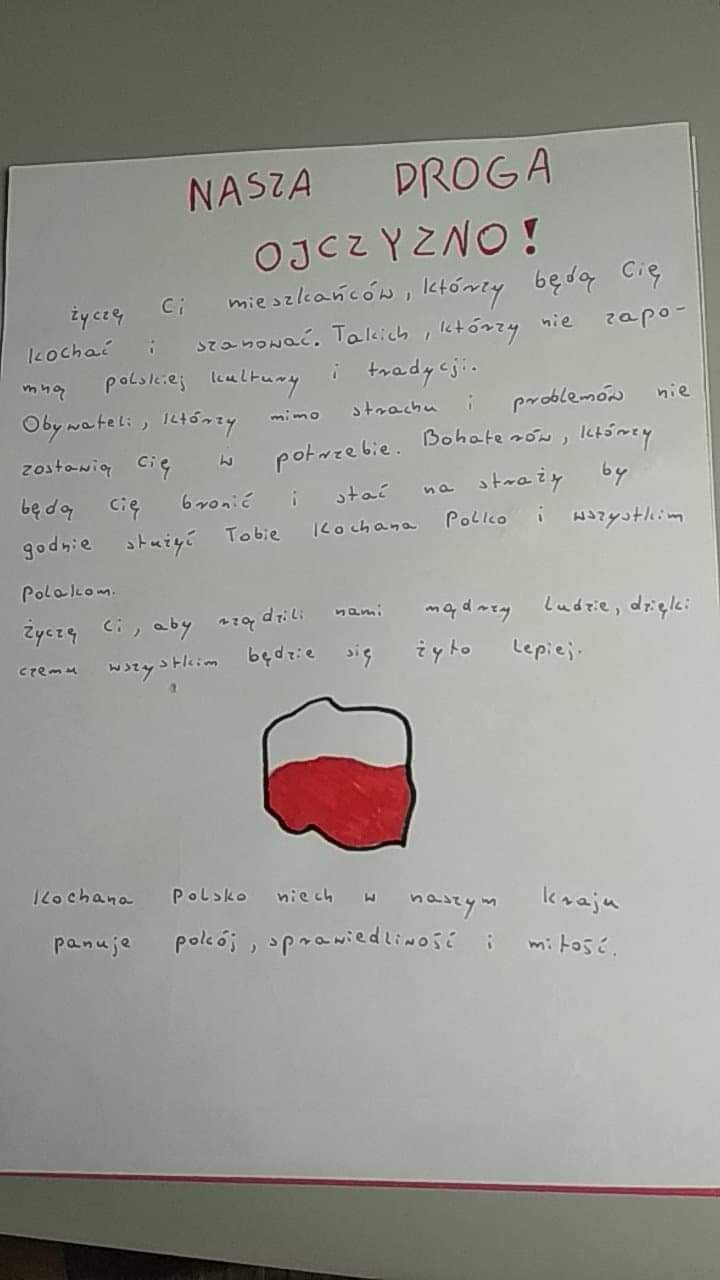 NASZA DROGA
OJCZYZNO!
życzę Ci mieszkańców, którzy będą Cię
kochać i szanować. Takich, którzy nie zapo-
mną polskiej kultury i tradycji.
Obywateli, którzy mimo strachu i problemów nie
zostawią Cię w potrzebie. Bohaterów, którzy
będą Cię bronić i stać na straży by
godnie służyć Tobie Kochana Polko i wszystkim
Polakom.
życzę Ci, aby rządzili nami mądrzy ludzie, dzięki
czemu wszystkim będzie się żyło lepiej.
Kochana Polsko niech w naszym kraju
panuje pokój, sprawiedliwość i miłość.